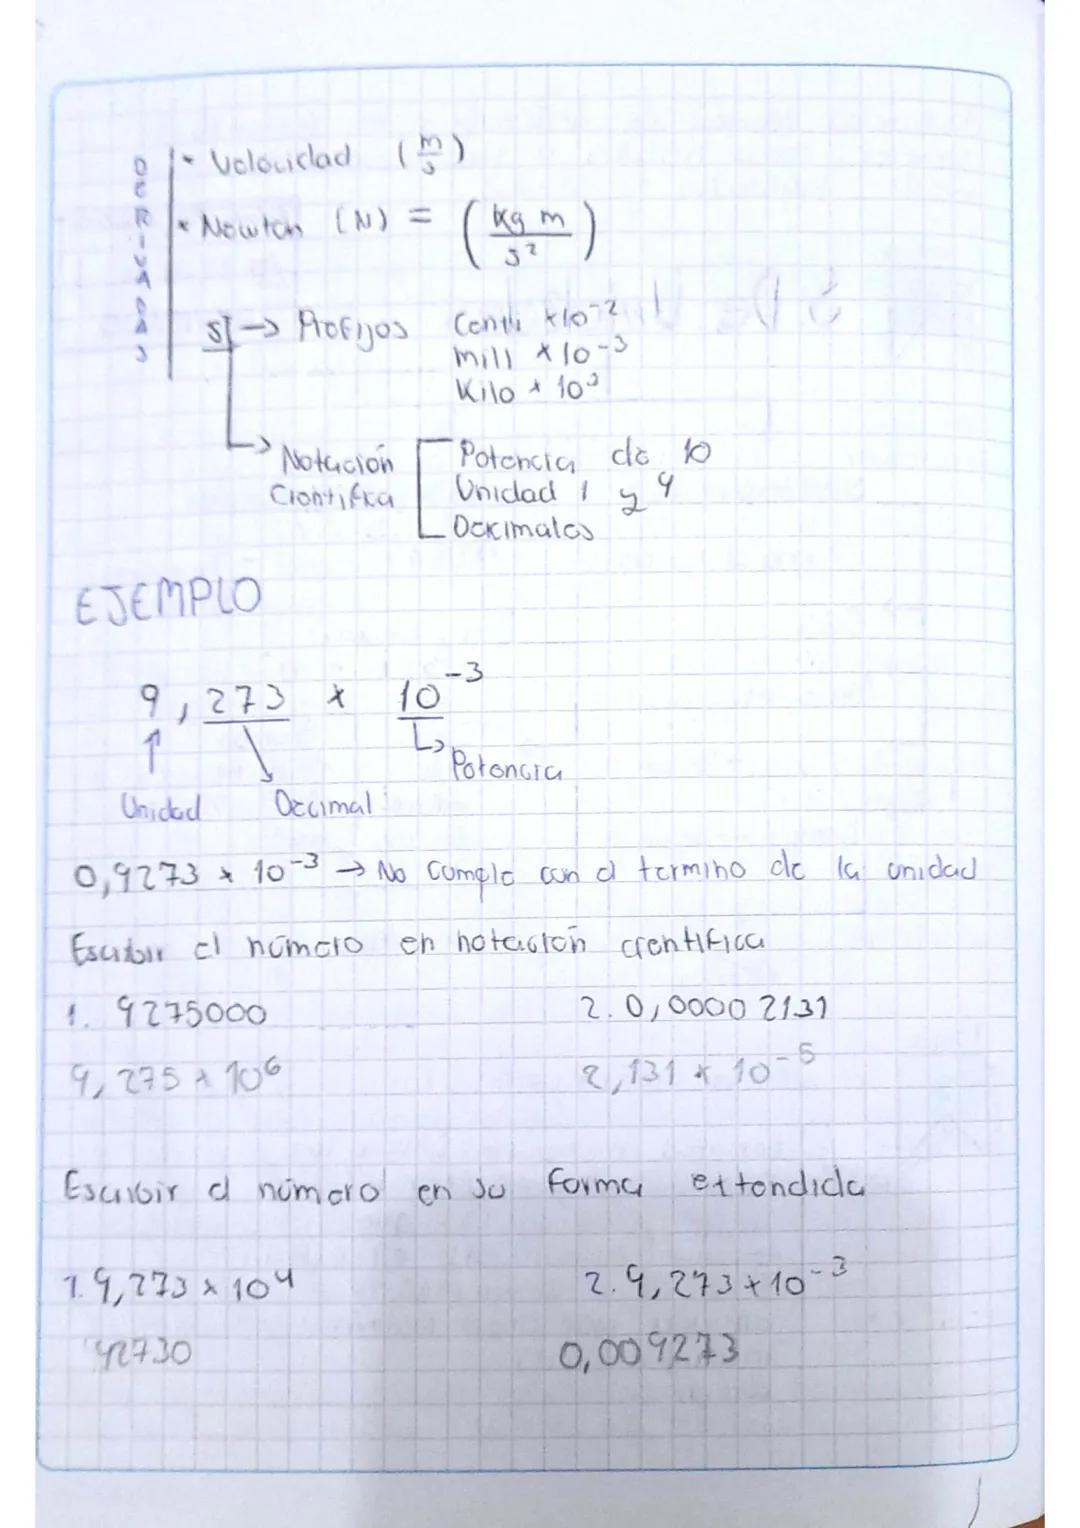 DERIVADAS
* Velocidad (m/s)
* Newton (N) = (kg m / s²)
SI → Prefijos Centi x10⁻²
Mili x 10⁻³
Kilo x 10³
Notación Potencia de 10
Cientifica Unidad 1 y 9
Decimales
EJEMPLO
9,273 x 10⁻³
Potencia
Unidad Decimal
0,9273 x 10⁻³ → No cumple con el termino de la unidad
Escribir el número en notación cientifica
1. 9275000 2. 0,00002131
9,275 x 10⁶ 2,131 x 10⁻⁵
Escribir el número en su forma extendida
1. 9,273 x 10⁴ 2. 9,273 x 10⁻³
92730 0,009273